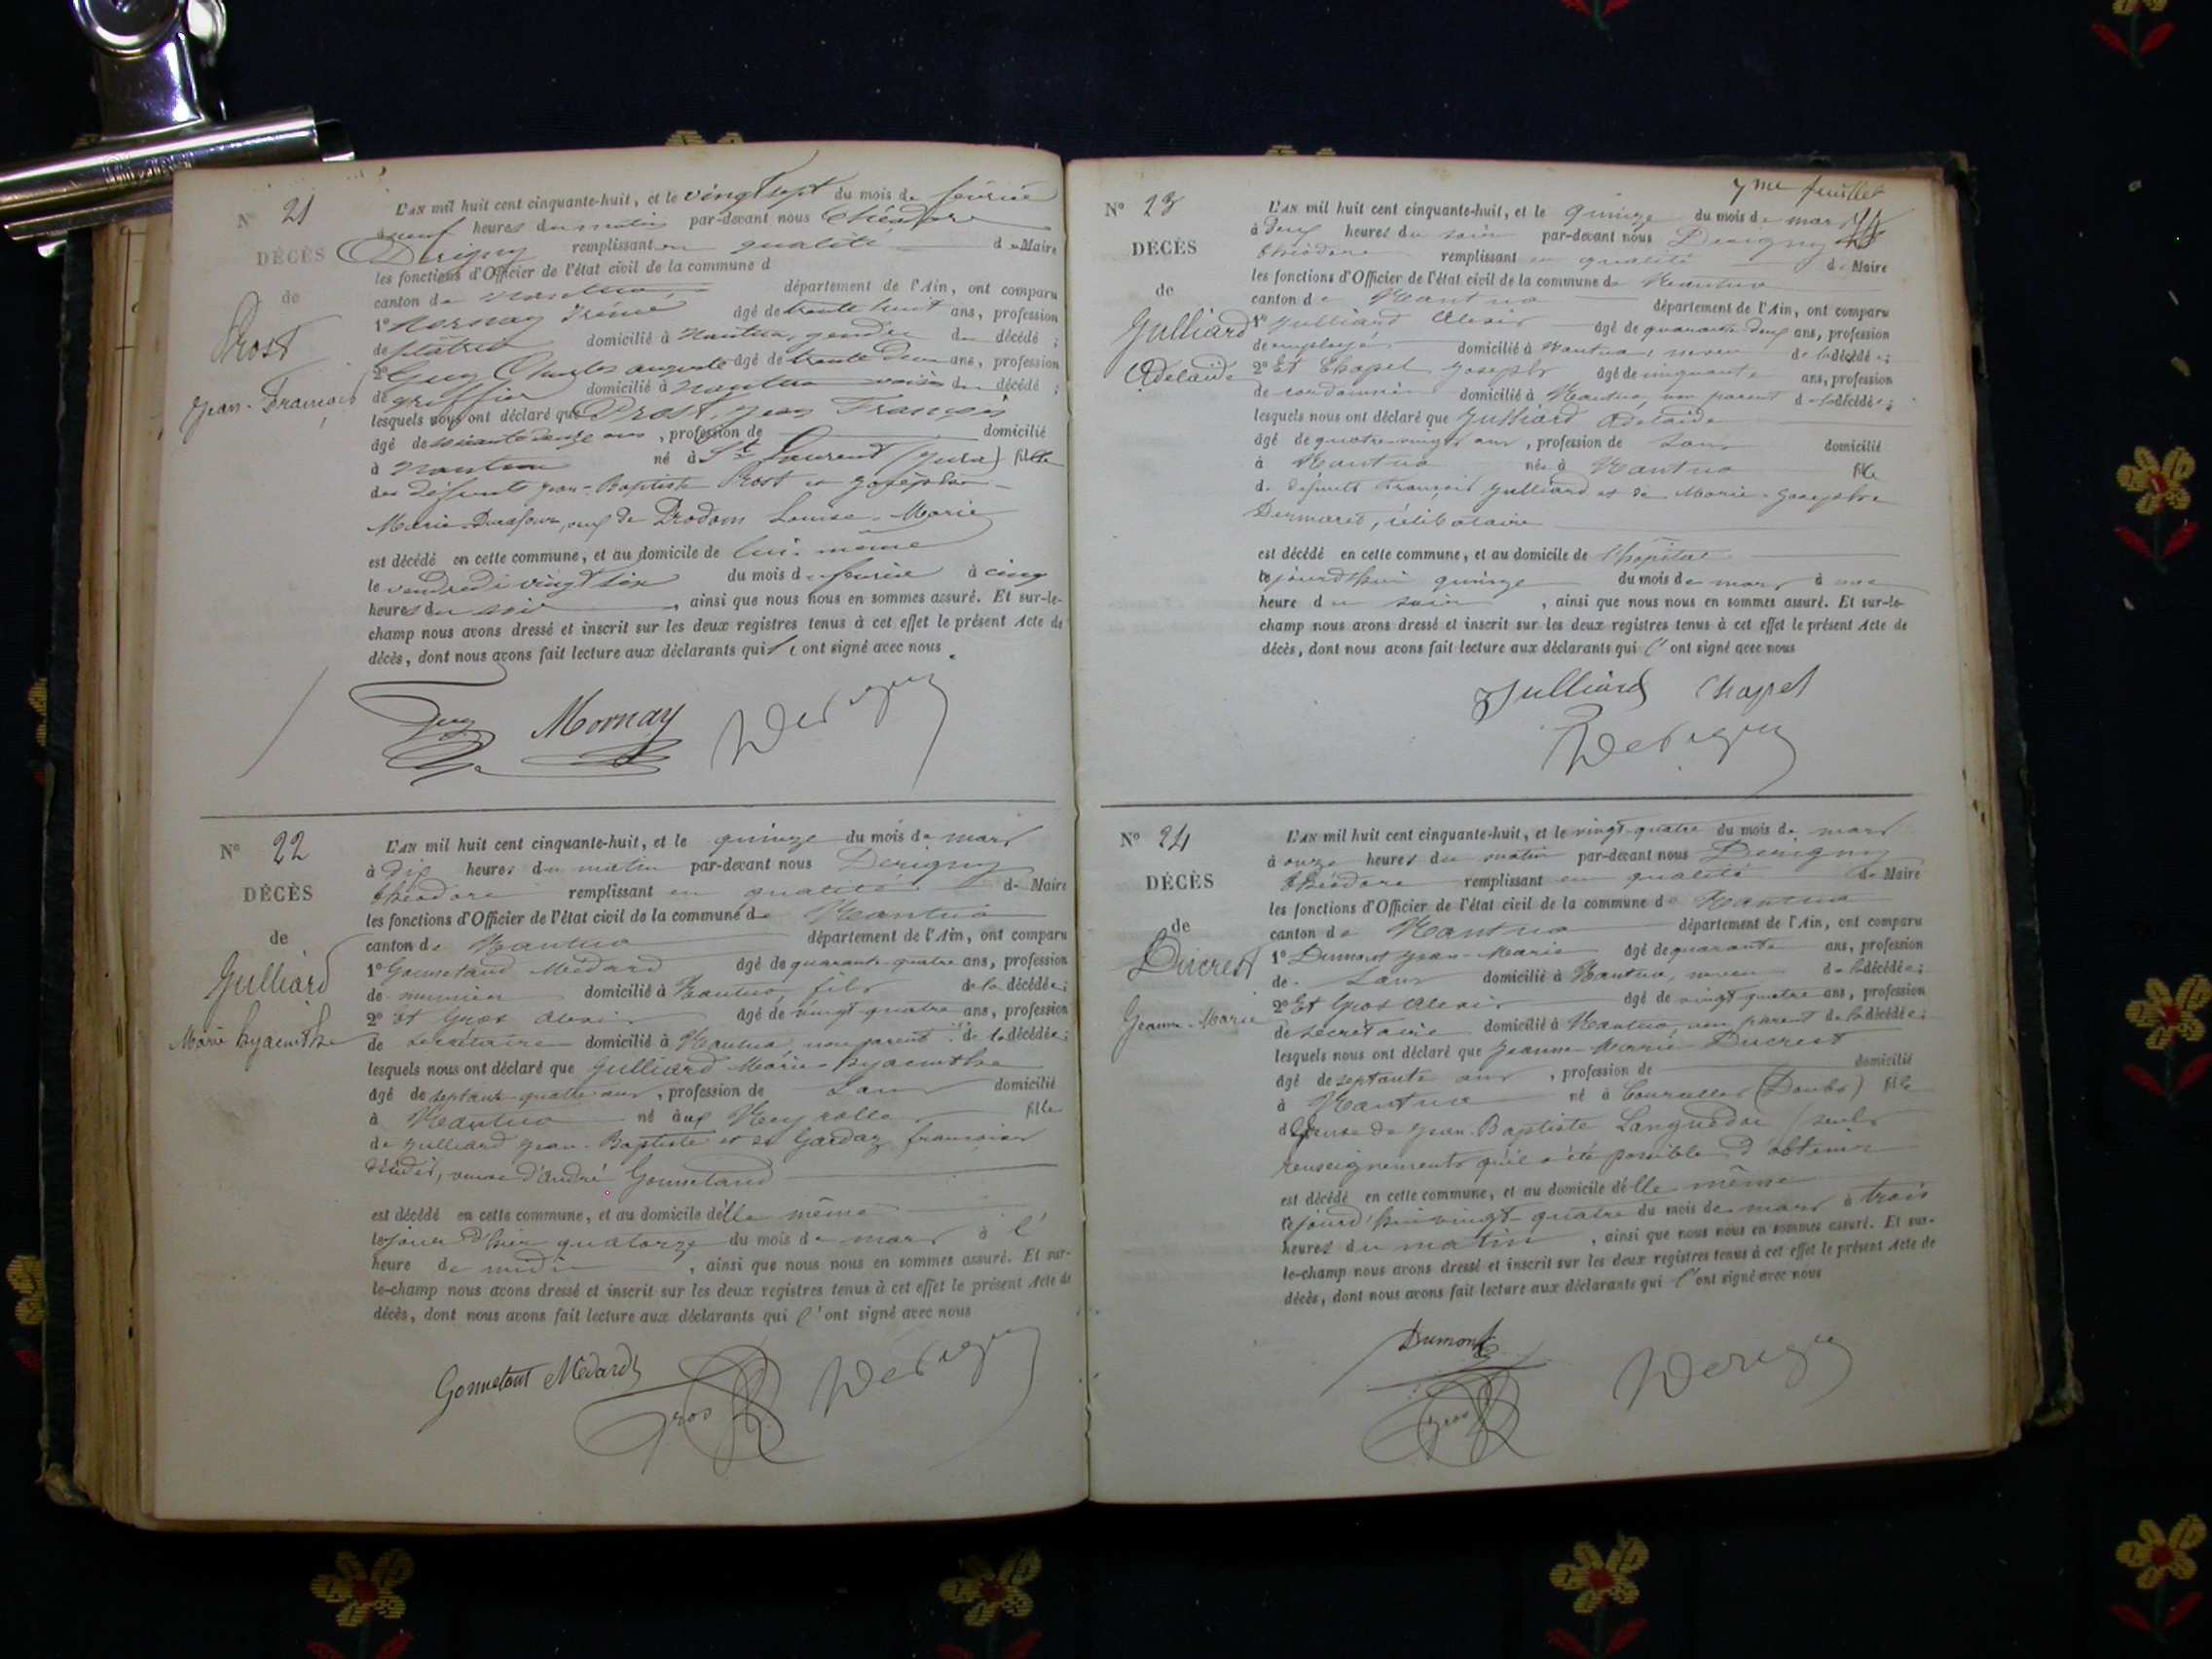 N 21
DÉCÈS
de
Prost
Jean-François
L'AN mil huit cent cinquante-huit, et le vingt sept du mois de février
à neuf heures du matin par-devant nous Théodore
Derigny remplissant en qualité de Maire
les fonctions d'Officier de l'état civil de la commune d
canton de Nantua département de l'Ain, ont comparu
1° Mornay Iréné âgé de trente huit ans, profession
de plâtrier domicilié à Nantua, gendre du décédé ;
2° Guy Charles auguste âgé de trente deux ans, profession
de greffier domicilié à Nantua voisin du décédé ;
lesquels nous ont déclaré que Prost, Jean François
âgé de soixante douze ans, profession de domicilié
à Nantua né à St Laurent (Jura) fils
des défunts Jean-Baptiste Prost et Joséphine
Marie Durafour, veuf de Prodon Louise-Marie
est décédé en cette commune, et au domicile de lui-même
le vendredi vingt six du mois de février à cinq
heures du soir, ainsi que nous nous en sommes assuré. Et sur-le-
champ nous avons dressé et inscrit sur les deux registres tenus à cet effet le présent Acte de
décès, dont nous avons fait lecture aux déclarants qui l'ont signé avec nous.
Guy Mornay Derigny
N° 22
DÉCÈS
de
Julliard
Marie hyacinthe
L'AN mil huit cent cinquante-huit, et le quinze du mois de mars
à dix heures du matin par-devant nous Derigny
théodore remplissant en qualité de Maire
les fonctions d'Officier de l'état civil de la commune de Nantua
canton de Nantua département de l'Ain, ont comparu
1° Gonnetand Médard âgé de quarante quatre ans, profession
de domicilié à Nantua, fils de la décédée ;
2° Et Gros Alexis âgé de vingt-quatre ans, profession
de secrétaire domicilié à Nantua, non parent de la décédée ;
lesquels nous ont déclaré que Julliard Marie-hyacinthe
âgé de septante-quatre ans, profession de sans domicilié
à Nantua né aux Neyrolles fille
de Julliard Jean-Baptiste et de Gardaz françoise
décédés, veuve d'andré Gonnetand
est décédé en cette commune, et au domicile d'elle même
le jour d'hier quatorze du mois de mars à l'
heure de midi, ainsi que nous nous en sommes assuré. Et sur-
le-champ nous avons dressé et inscrit sur les deux registres tenus à cet effet le présent Acte de
décès, dont nous avons fait lecture aux déclarants qui l'ont signé avec nous
Gonnetant Médard Gros Derigny
7me feuillet
N° 23
DÉCÈS
de
Julliard
Adelaïde
L'AN mil huit cent cinquante-huit, et le quinze du mois de mars
à deux heures du soir par-devant nous Derigny
théodore remplissant en qualité de Maire
les fonctions d'Officier de l'état civil de la commune de Nantua
canton de Nantua département de l'Ain, ont comparu
1° Julliard Alexis âgé de quarante deux ans, profession
de employé domicilié à Nantua, neveu de la décédée ;
2° Et Chapel Joseph âgé de cinquante ans, profession
de cordonnier domicilié à Nantua, non parent de la décédée ;
lesquels nous ont déclaré que Julliard Adelaïde
âgé de quatre-vingts ans, profession de sans domicilié
à Nantua née à Nantua fille
de défunts François Julliard et de Marie-Josephe
célibataire
est décédé en cette commune, et au domicile de l'hôpital
le jourd'hui quinze du mois de mars à une
heure du soir, ainsi que nous nous en sommes assuré. Et sur-le-
champ nous avons dressé et inscrit sur les deux registres tenus à cet effet le présent Acte de
décès, dont nous avons fait lecture aux déclarants qui l'ont signé avec nous
Julliard Chapel
Derigny
N° 24
DÉCÈS
de
Ducrest
Jeanne-Marie
L'AN mil huit cent cinquante-huit, et le vingt-quatre du mois de mars
à onze heures du matin par-devant nous Derigny
théodore remplissant en qualité de Maire
les fonctions d'Officier de l'état civil de la commune de Nantua
canton de Nantua département de l'Ain, ont comparu
1° Dumont Jean-Marie âgé de quarante ans, profession
de sans domicilié à Nantua, neveu de la décédée ;
2° Et Gros Alexis âgé de vingt-quatre ans, profession
de secrétaire domicilié à Nantua, non parent de la décédée ;
lesquels nous ont déclaré que Jeanne-Marie Ducrest
âgé de septante ans, profession de domicilié
à Nantua né à (Doubs) fille
d épouse de Jean-Baptiste Languedoc (seuls
renseignements qu'il a été possible d'obtenir
est décédé en cette commune, et au domicile d'elle même
le jourd'hui vingt-quatre du mois de mars à trois
heures du matin, ainsi que nous nous en sommes assuré. Et sur-
le-champ nous avons dressé et inscrit sur les deux registres tenus à cet effet le présent Acte de
décès, dont nous avons fait lecture aux déclarants qui l'ont signé avec nous
Dumont
Gros Derigny